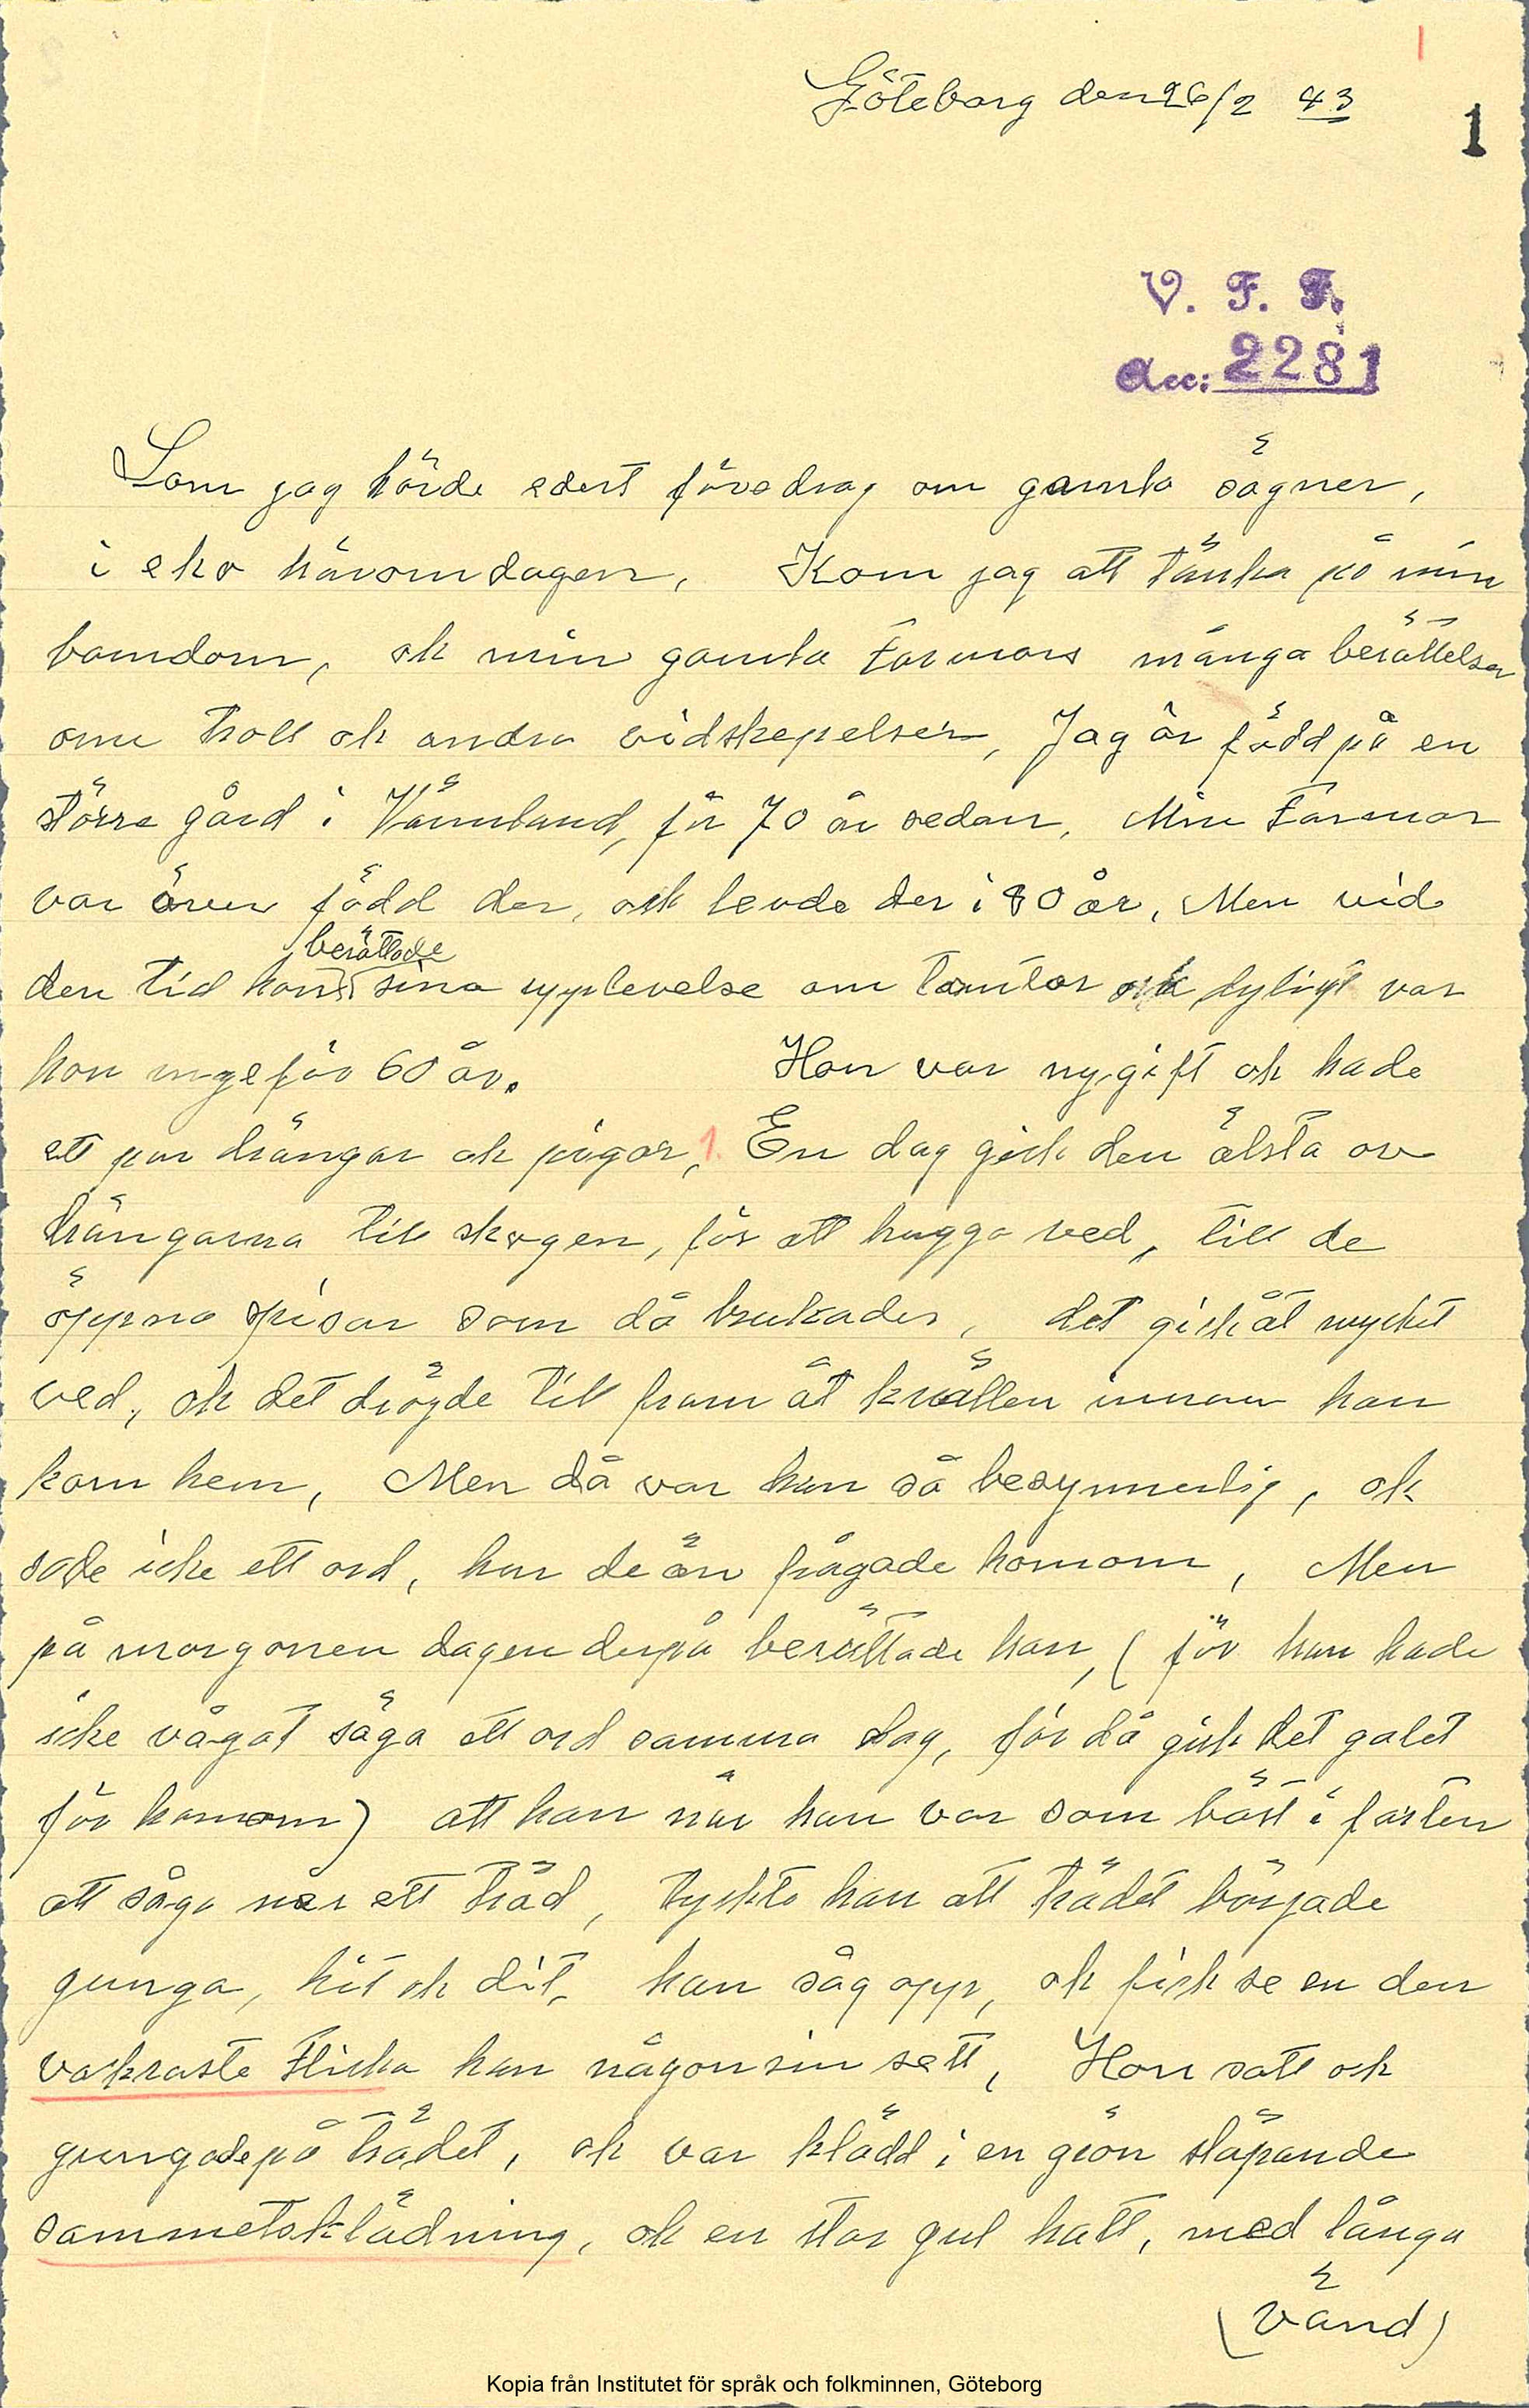 Göteborg den 26/2 43
1
V. F. F.
Acc: 2281
Som jag hörde edert föredrag om gamla sägner,
i eko häromdagen, Kom jag att tänka på min
barndom, ok min gamla Farmors många berättelser
om troll ok andra vidskepelser, Jag är född på en
större gård i Värmland, för 70 år sedan, Min Farmor
var även född der, ock levde der i 80 år, Men vid
berättade
den tid hon sina upplevelse om tomtar ock dyligt var
hon ungefär 60 år. Hon var nygift ok hade
ett par drängar ok pigor, 1. En dag gick den älsta av
drängarna till skogen, för att hugga ved, till de
öppna spisar som då brukades, det gick åt mycket
ved, ok det drögde till fram åt kvällen innan han
kom hem, Men då var han så besynnerlig, ok
sade icke ett ord, hur de än frågade honom, Men
på morgonen dagen derpå berättade han, (för han hade
icke vågat säga ett ord samma dag, för då gick det galet
för honom) att han när han var som bäst i farten
att såga när ett träd, tyckte han att trädet började
gunga, hit ok dit, han såg opp, ok fick se en den
vackraste Flicka han någonsin sett, Hon satt ock
gungade på trädet, ok var klädd i en grön släpande
sammetsklädning, ok en stor gul hatt, med långa
(vänd)
Kopia från Institutet för språk och folkminnen, Göteborg